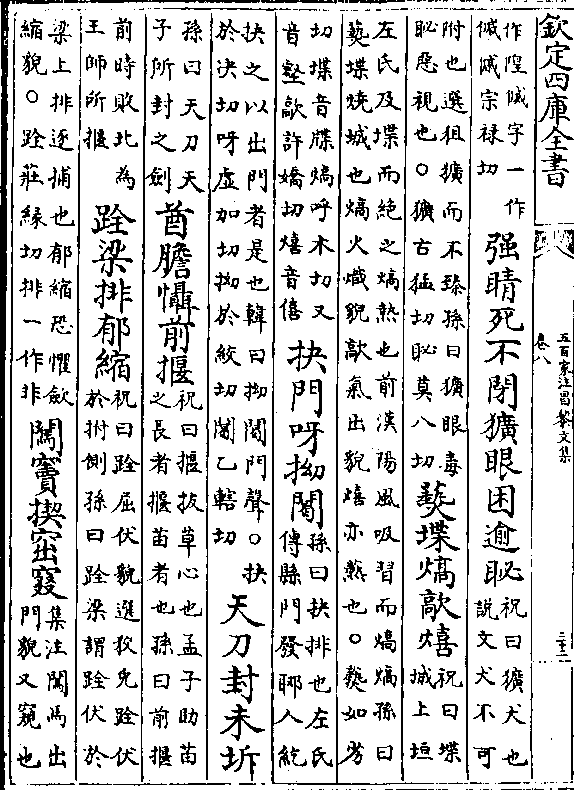 欽定四庫全書
五百家注昌黎文集
卷八
作隍傶字一作
傶傶宗禄切
强睛死不閉獷眼困逾䀣
祝曰獷犬也
說文犬不可
附也選狙獷而不臻孫曰獷眼毒
䀣惡視也○獷古猛切䀣莫八切
爇堞熇歊熺
祝曰堞
城上垣
左氏及堞而絶之熇熱也前漢陽風吸習而熇熇孫曰
爇堞燒城也熇火熾貌歊氣出貌熺亦熱也○爇如劣
切堞音牒熇呼木切又
音壑歊許嬌切熺音僖
抉門呀拗閜
孫曰抉排也左氏
傳縣門發郰人紇
抉之以出門者是也韓曰拗閜門聲○抉
於決切呀虛加切拗於絞切閜乙轄切
天刀封未坼
孫曰天刀天
子所封之劍
酋膽懾前揠
祝曰揠拔草心也孟子助苗
之長者揠苗者也孫曰前揠
前時敗北為
王師所揠
跧梁排郁縮
祝曰跧屈伏貌選狡兔跧伏
於柎側孫曰跧梁謂跧伏於
梁上排逐捕也郁縮恐懼歛
縮貌○跧莊緣切排一作非
闖竇揳窋窡
集注闖馬出
門貌又窺也